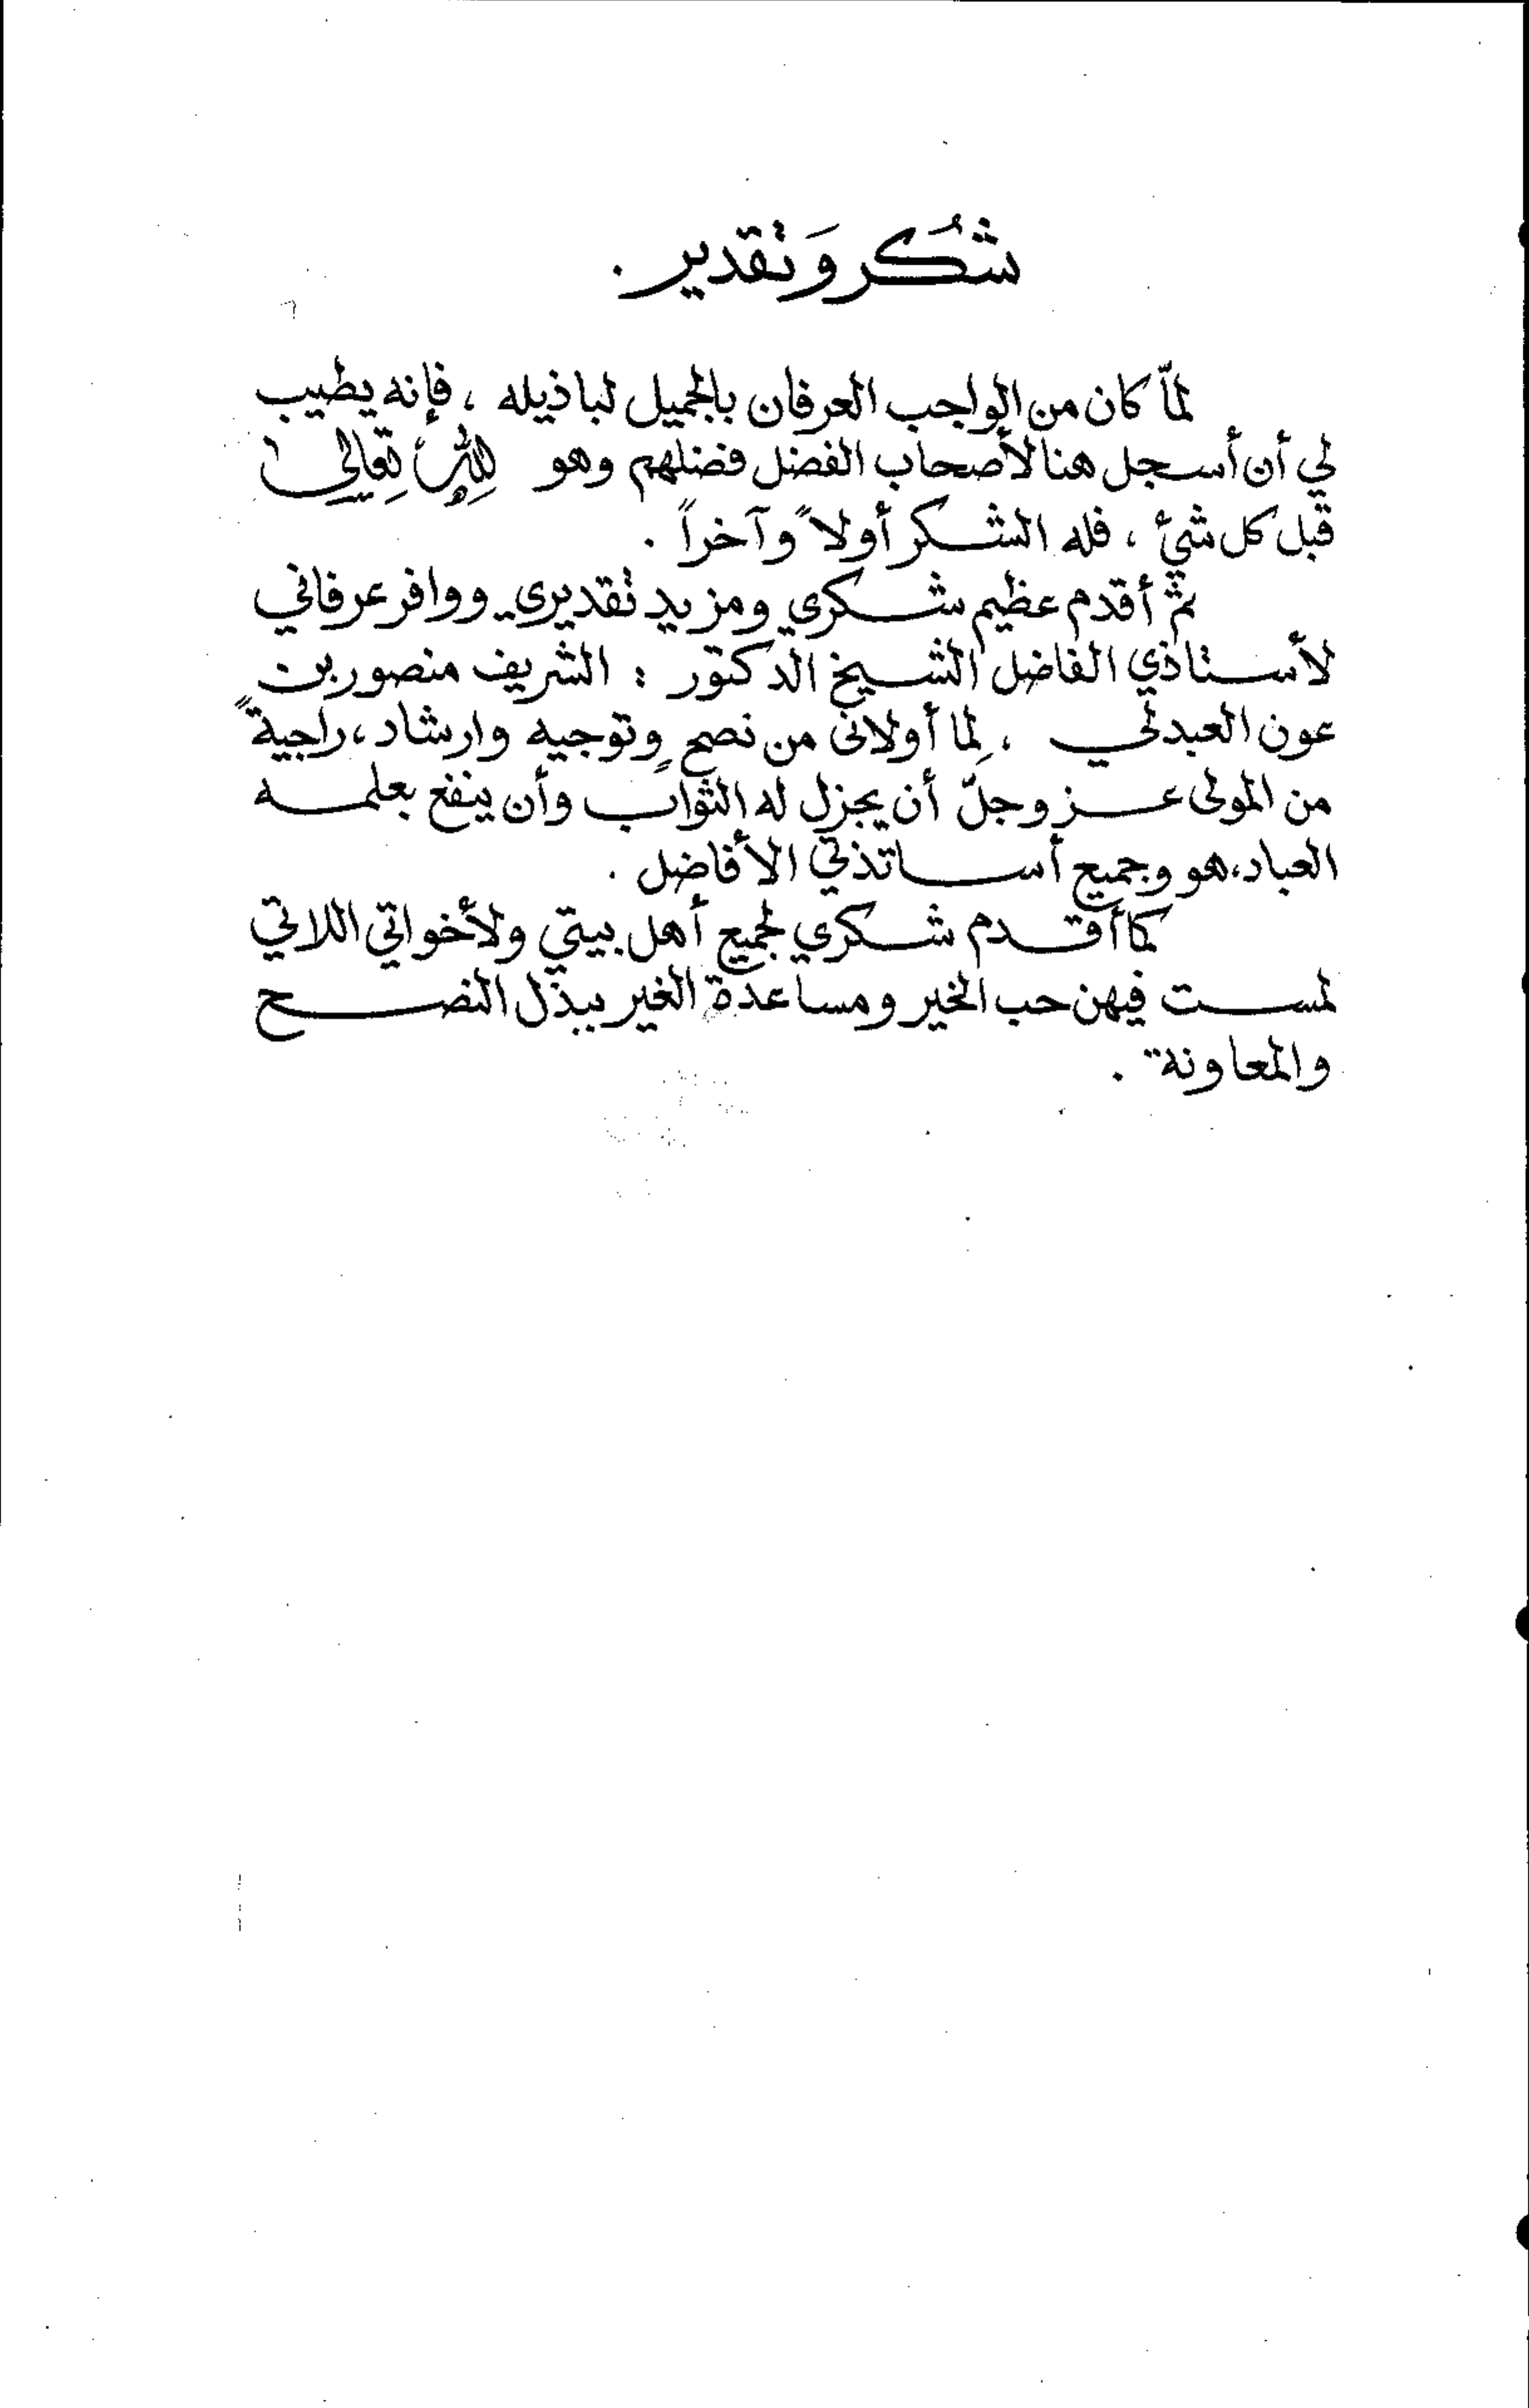 شُكر وَتقدير .
لمّا كان من الواجب العرفان بالجميل لباذيله ، فإنه يطيب
لي أن أسجل هنا لأصحاب الفضل فضلهم وهو لله تعالى
قبل كل شيء ، فله الشكر أولاً وآخراً .
ثم أقدم عظيم شكري ومزيد تقديري ووافر عرفاني
لأستاذي الفاضل الشيخ الدكتور : الشريف منصور بن
عون العبدلي ، لِما أولانى من نصحٍ وتوجيه وارشاد ، راجيةً
من المولى عز وجلّ أن يجزل له الثواب وأن ينفع بعلمه
العباد ، هو وجميع أساتذتي الأفاضل .
كما أقدم شكري لجميع أهل بيتي ولأخواتي اللاتي
لمست فيهن حب الخير ومساعدة الغير ببذل النصح
والمعاونة .